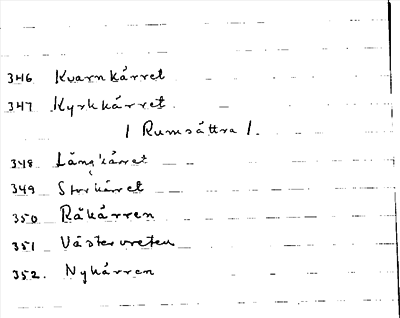 346 Kvarnkärret
347 Kyrkkärret
/ Rumsättra /.
348 Långkärret
349 Storkärret
350 Råkärren
351 Västervreten
352. Nykärren